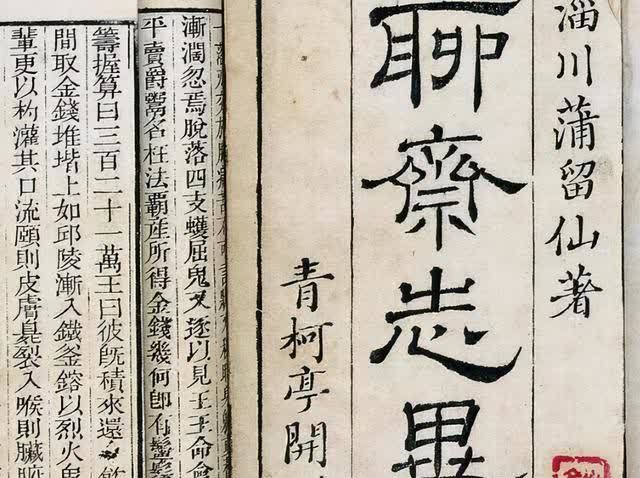 淄川蒲留仙著
聊齋志異
青柯亭開
漸濶忽焉脫落四支蠖屈鬼又逐以見王王命會
平賣爵鬻名枉法覇産所得金錢幾何卽有鬡鬚
籌握算曰三百二十一萬王曰彼旣積來還令
間取金錢堆堦上如邱陵漸入鐵釜鎔以烈火鬼
輩更以杓灌其口流頤則皮膚臭裂入喉則臟腑